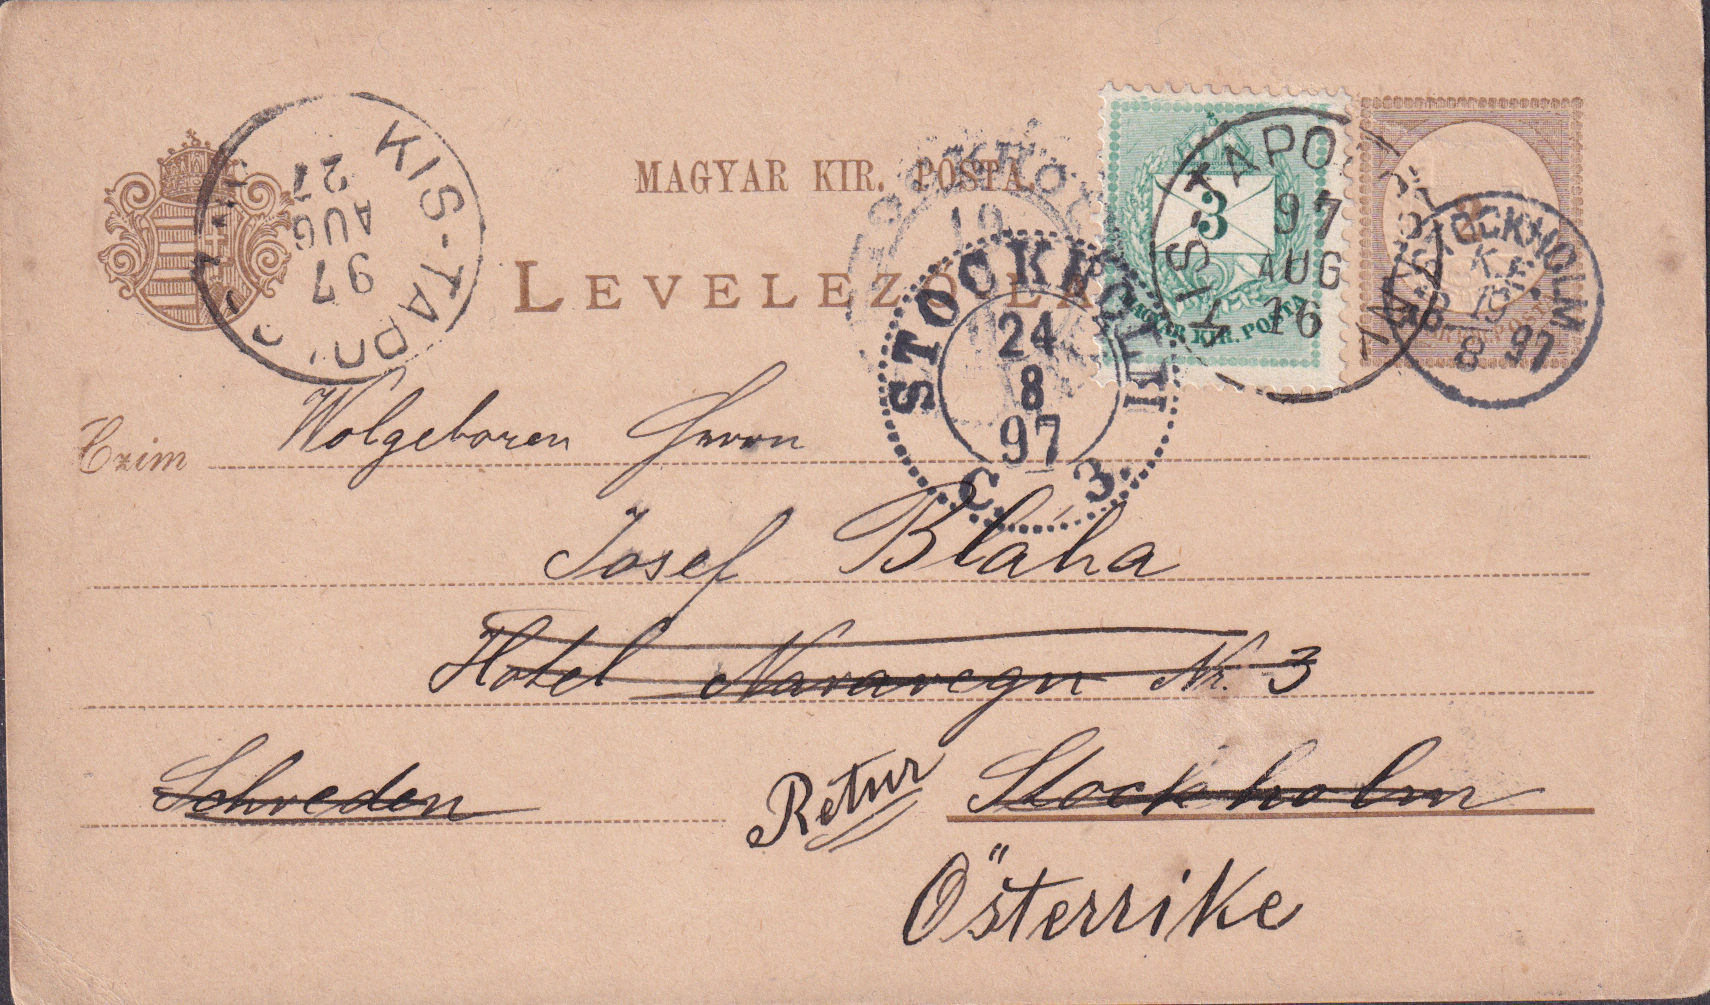 MAGYAR KIR. POSTA.
LEVELEZŐ-LA
KIS-TAPO
97
AUG
27
3
MAGYAR KIR. POSTA
KIS-TAPO
97
AUG
16
STOCKHOLM
K.E.
19
8 97
STOCKHOLM
24
8
97
C. 3.
19
Czim Wolgeboren Herrn
Josef Bláha
Hotel Nr. 3
Schveden Retur Stockholm
Österrike